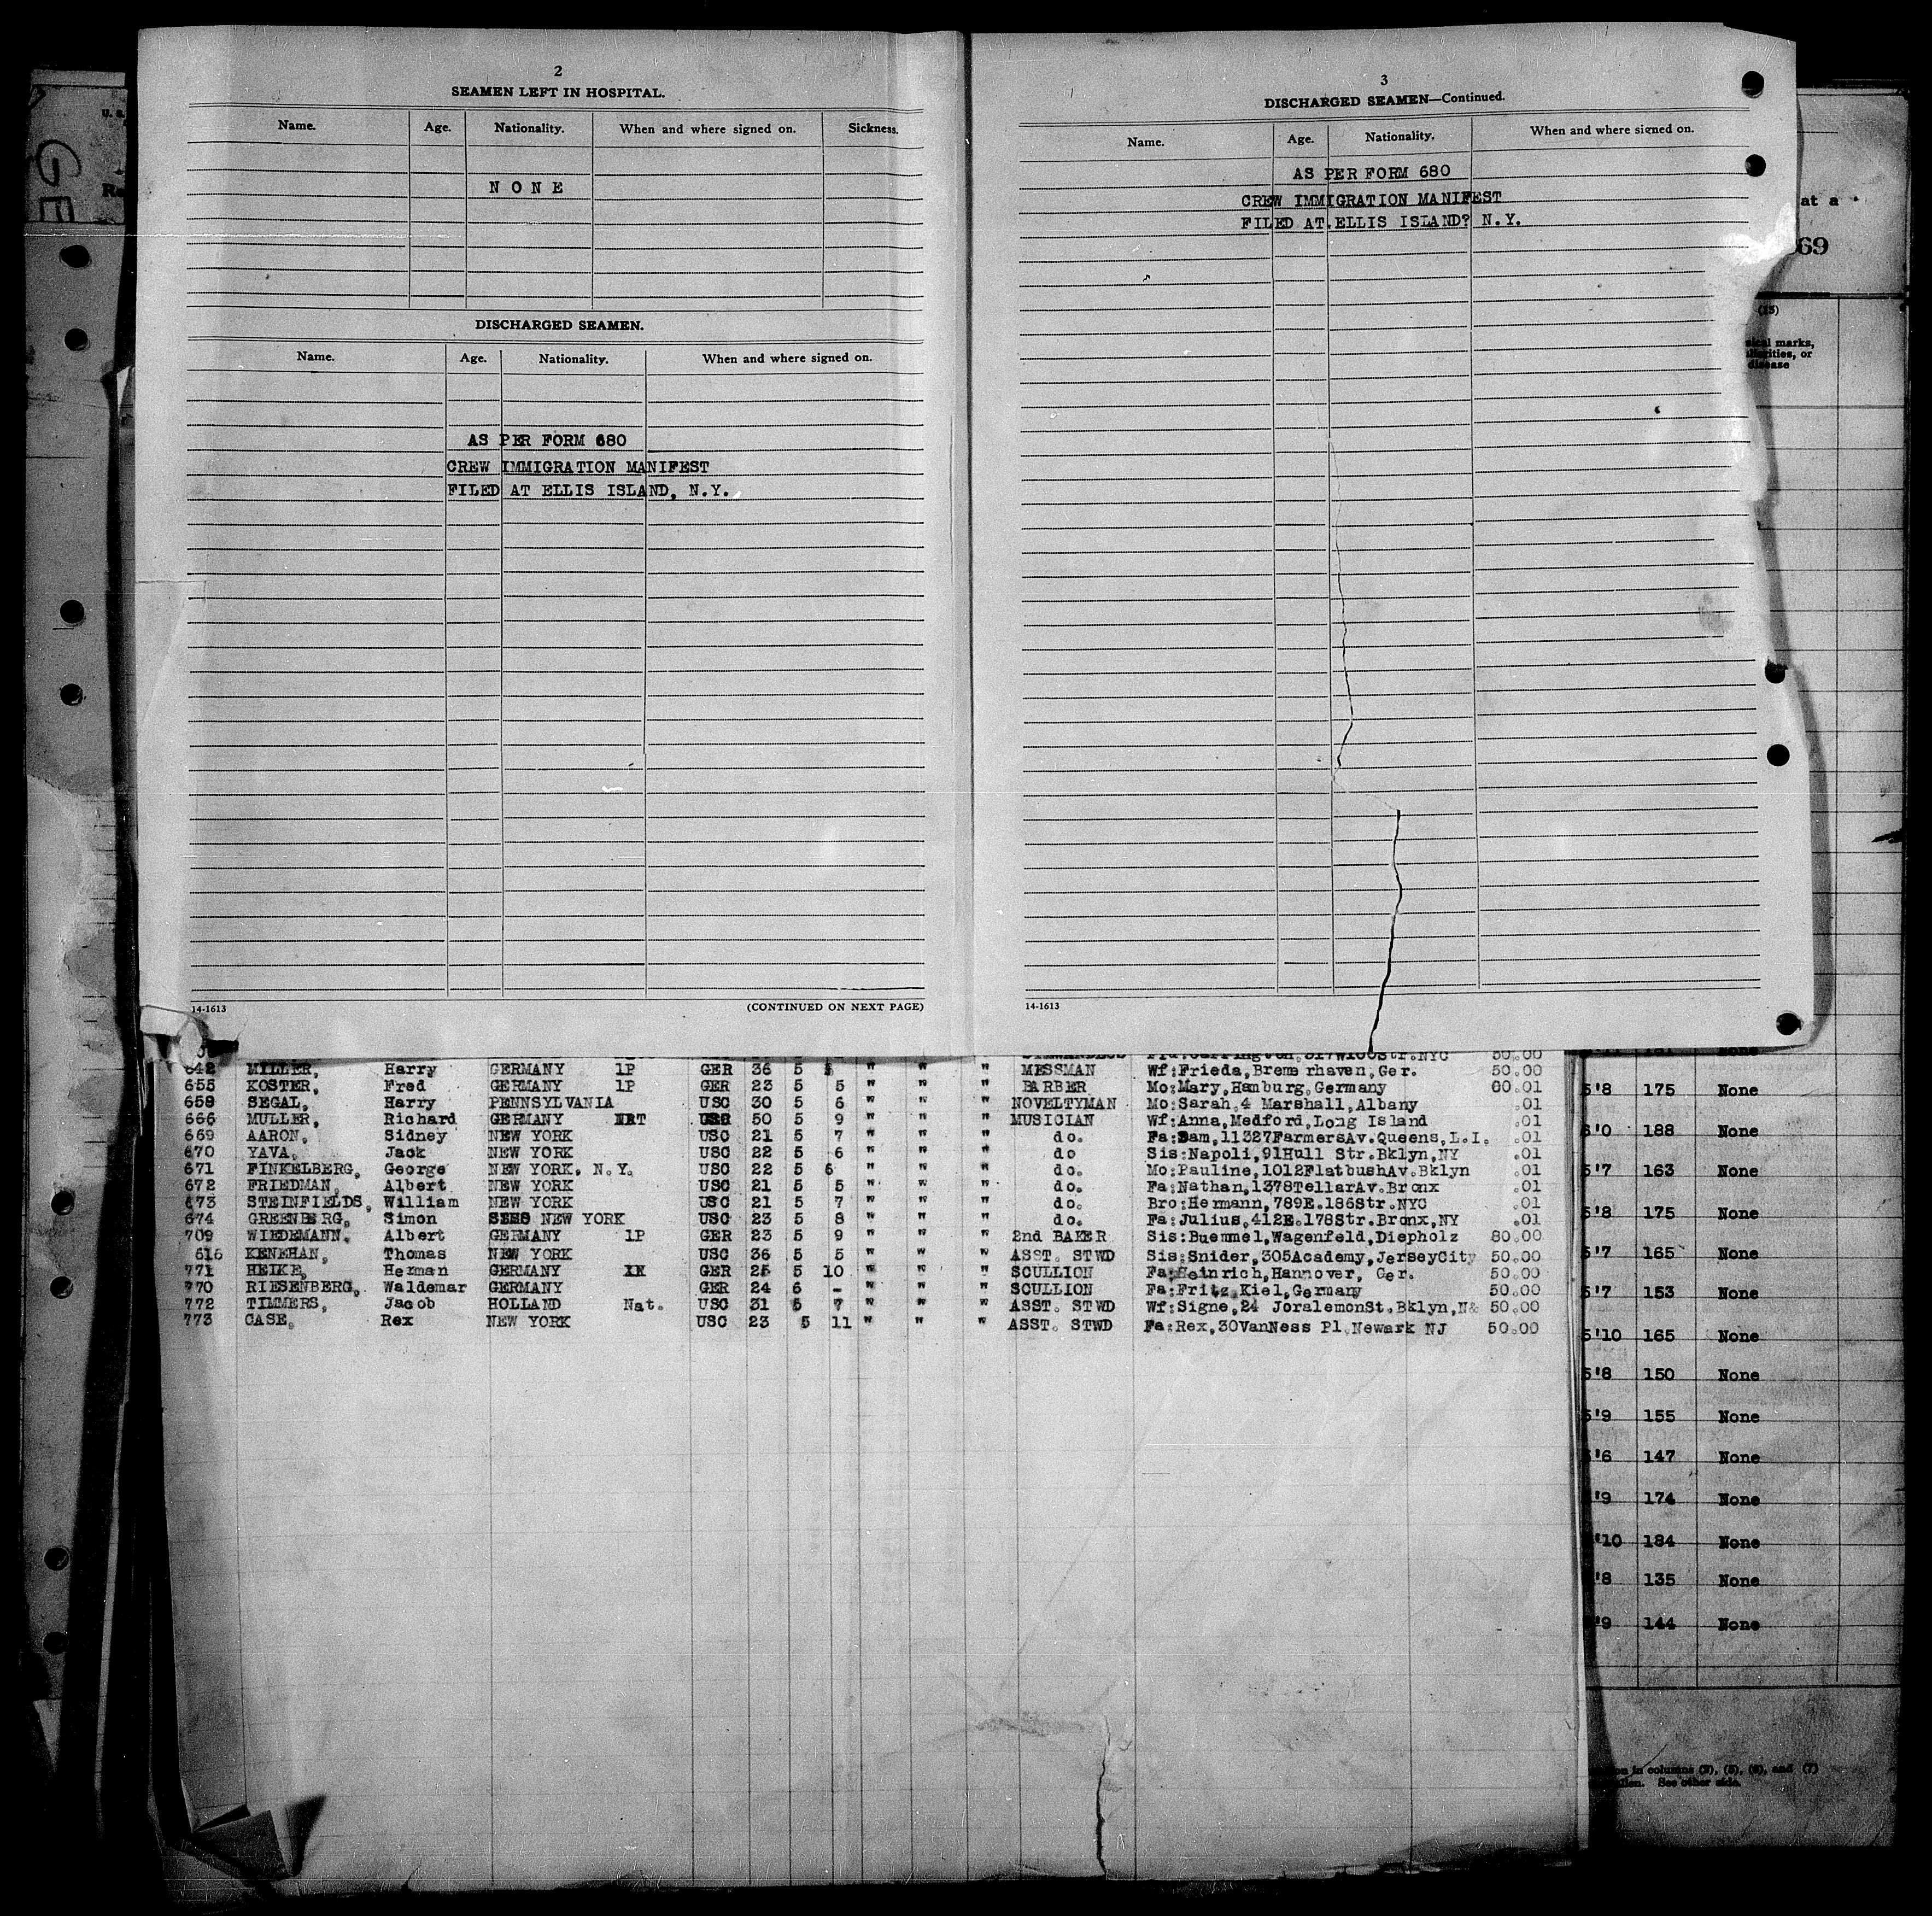 2
SEAMEN LEFT IN HOSPITAL.
Name. Age. Nationality. When and where signed on. Sickness.
N O N E
DISCHARGED SEAMEN.
Name. Age. Nationality. When and where signed on.
AS PER FORM 680
CREW IMMIGRATION MANIFEST
FILED AT ELLIS ISLAND, N.Y.
14-1613 (CONTINUED ON NEXT PAGE)
3
DISCHARGED SEAMEN—Continued.
Name. Age. Nationality. When and where signed on.
AS PER FORM 680
CREW IMMIGRATION MANIFEST
FILED AT ELLIS ISLAND? N.Y.
14-1613
U. S.
GE
at a
69
(15)
marks,
or
disease
50.00
642 MILLER, Harry GERMANY 1P GER 36 5 " " " MESSMAN Wf:Frieda,Bremerhaven,Ger. 50.00
655 KOSTER, Fred GERMANY 1P GER 23 5 5 " " " BARBER Mo:Mary,Hamburg,Germany 00.01
659 SEGAL, Harry PENNSYLVANIA USC 30 5 6 " " " NOVELTYMAN Mo:Sarah,4 Marshall,Albany .01
666 MULLER, Richard GERMANY USC 50 5 9 " " " MUSICIAN Wf:Anna,Medford,Long Island .01
669 AARON, Sidney NEW YORK USC 21 5 7 " " " do. Fa:Sam,11327FarmersAv.Queens,L.I. .01
670 YAVA, Jack NEW YORK USC 22 5 6 " " " do Sis:Napoli,91Hull Str.Bklyn,NY .01
671 FINKELBERG, George NEW YORK, N.Y. USC 22 5 6 " " " do. Mo:Pauline,1012FlatbushAv.Bklyn .01
672 FRIEDMAN, Albert NEW YORK USC 21 5 5 " " " do. Fa:Nathan,1378TellarAv.Bronx .01
673 STEINFIELDS, William NEW YORK USC 21 5 7 " " " do. Bro:Hermann,789E.186Str.NYC .01
674 GREENBERG, Simon NEW YORK USC 23 5 8 " " " do. Fa:Julius,412E.178Str.Bronx,NY .01
709 WIEDEMANN, Albert GERMANY 1P GER 23 5 9 " " " 2nd BAKER Sis:Buemmel,Wagenfeld,Diepholz 80.00
616 KENEHAN, Thomas NEW YORK USC 36 5 5 " " " ASST. STWD Sis:Snider,305Academy,JerseyCity 50.00
771 HEIKE, Herman GERMANY GER 25 5 10 " " " SCULLION Fa:Heinrich,Hannover, Ger. 50.00
770 RIESENBERG, Waldemar GERMANY GER 24 6 - " " " SCULLION Fa:Fritz,Kiel,Germany 50.00
772 TIMMERS, Jacob HOLLAND Nat. USC 31 5 7 " " " ASST. STWD Wf:Signe,24 JoralemonSt.Bklyn, 50.00
773 CASE, Rex NEW YORK USC 23 5 11 " " " ASST. STWD Fa:Rex,30VanNess Pl.Newark NJ 50.00
None
5'8 175 None
188 None
5'7 163 None
5'8 175 None
5'7 165 None
5'7 153 None
5'10 165 None
5'8 150 None
5'9 155 None
'6 147 None
'9 174 None
'10 184 None
'8 135 None
'9 144 None
in columns (3), (5), (6), and (7)
See other side.